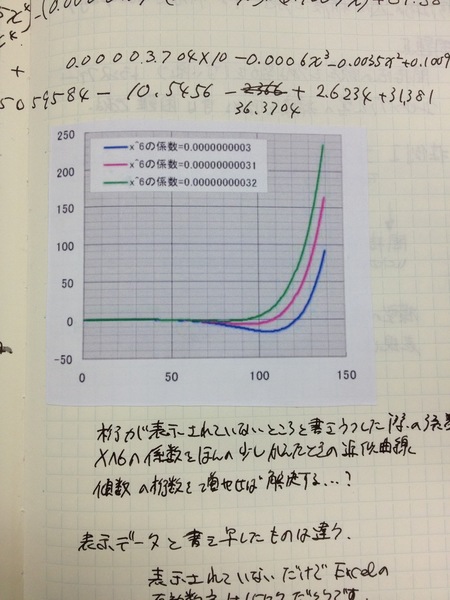 + 0.00003704x10 -0.0006x³-0.0035x²+0.1009
5059584 - 10.5456 - 2366 + 2.6234 + 31.381
36.3704
250
200
150
100
50
0
-50
x^6の係数=0.0000000003
x^6の係数=0.00000000031
x^6の係数=0.00000000032
0 50 100 150
桁が表示されていないところを書きうつした際の誤差
X^6の係数をほんの少しかえたときの近似曲線
値数の桁数を増せば解決する…?
表示データと書き写したものは違う.
表示されていないだけでExcelの